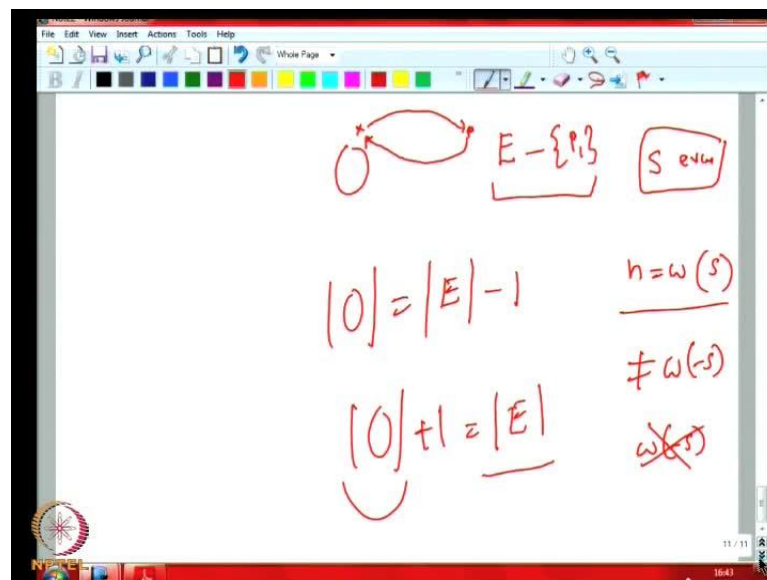 File Edit View Insert Actions Tools Help
Whole Page
B I
x
E - {P₁}
S even
O
|O| = |E| - 1
n = ω(S)
≠ ω(-S)
|O| + 1 = |E|
ω(-S)
11 / 11
NPTEL
16:43